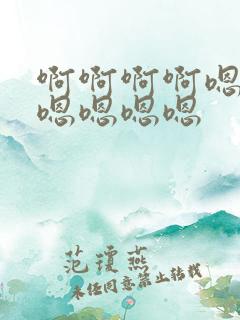 啊啊啊啊嗯
嗯嗯嗯嗯
范琼燕
未经同意禁止转载